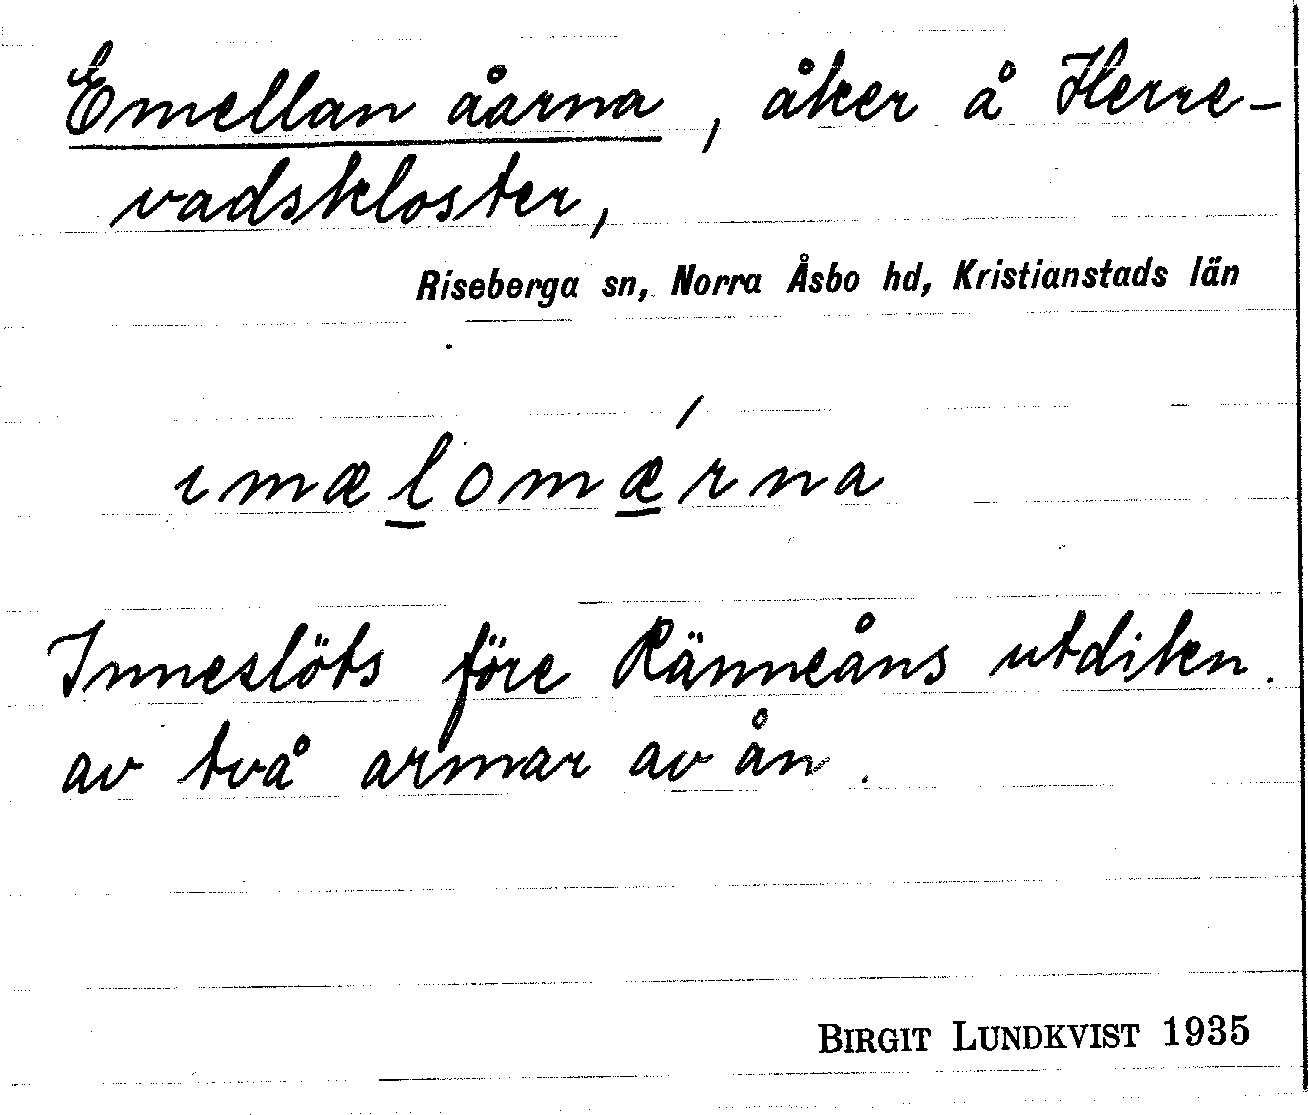 Emellan åarna, åker å Herre-
vadskloster,
Riseberga sn, Norra Åsbo hd, Kristianstads län
ımælomǽrna
Inneslöts före Ränneåns utdiken
av två armar av ån.
BIRGIT LUNDKVIST 1935